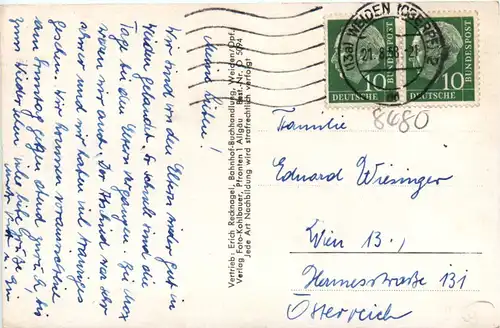 Meine Lieben!
Wir sind von den Eltern wieder gut in
Weiden gelandet. So schnell sind die
Tage bei den Eltern vergangen. Bei
waren wir auch. Der Herbst war sehr
und wir haben viel
Wir kommen voraussichtlich
am Sonntag gegen abend zurück bis
zum Wiedersehen viele liebe Grüße
Vertrieb: Erich Recknagel, Bahnhof-Buchhandlung, Weiden/Opf.
Verlag Foto-Kohlbauer, Pfronten 1 Allgäu Best. Nr. P 5094
Jede Art Nachbildung wird strafrechtlich verfolgt
(13a) WEIDEN (OBERPF) 2
10 DEUTSCHE BUNDESPOST
DEUTSCHE BUNDESPOST 10
8480
Familie
Eduard Wiesinger
Wien 13.,
Hermesstraße 131
Österreich